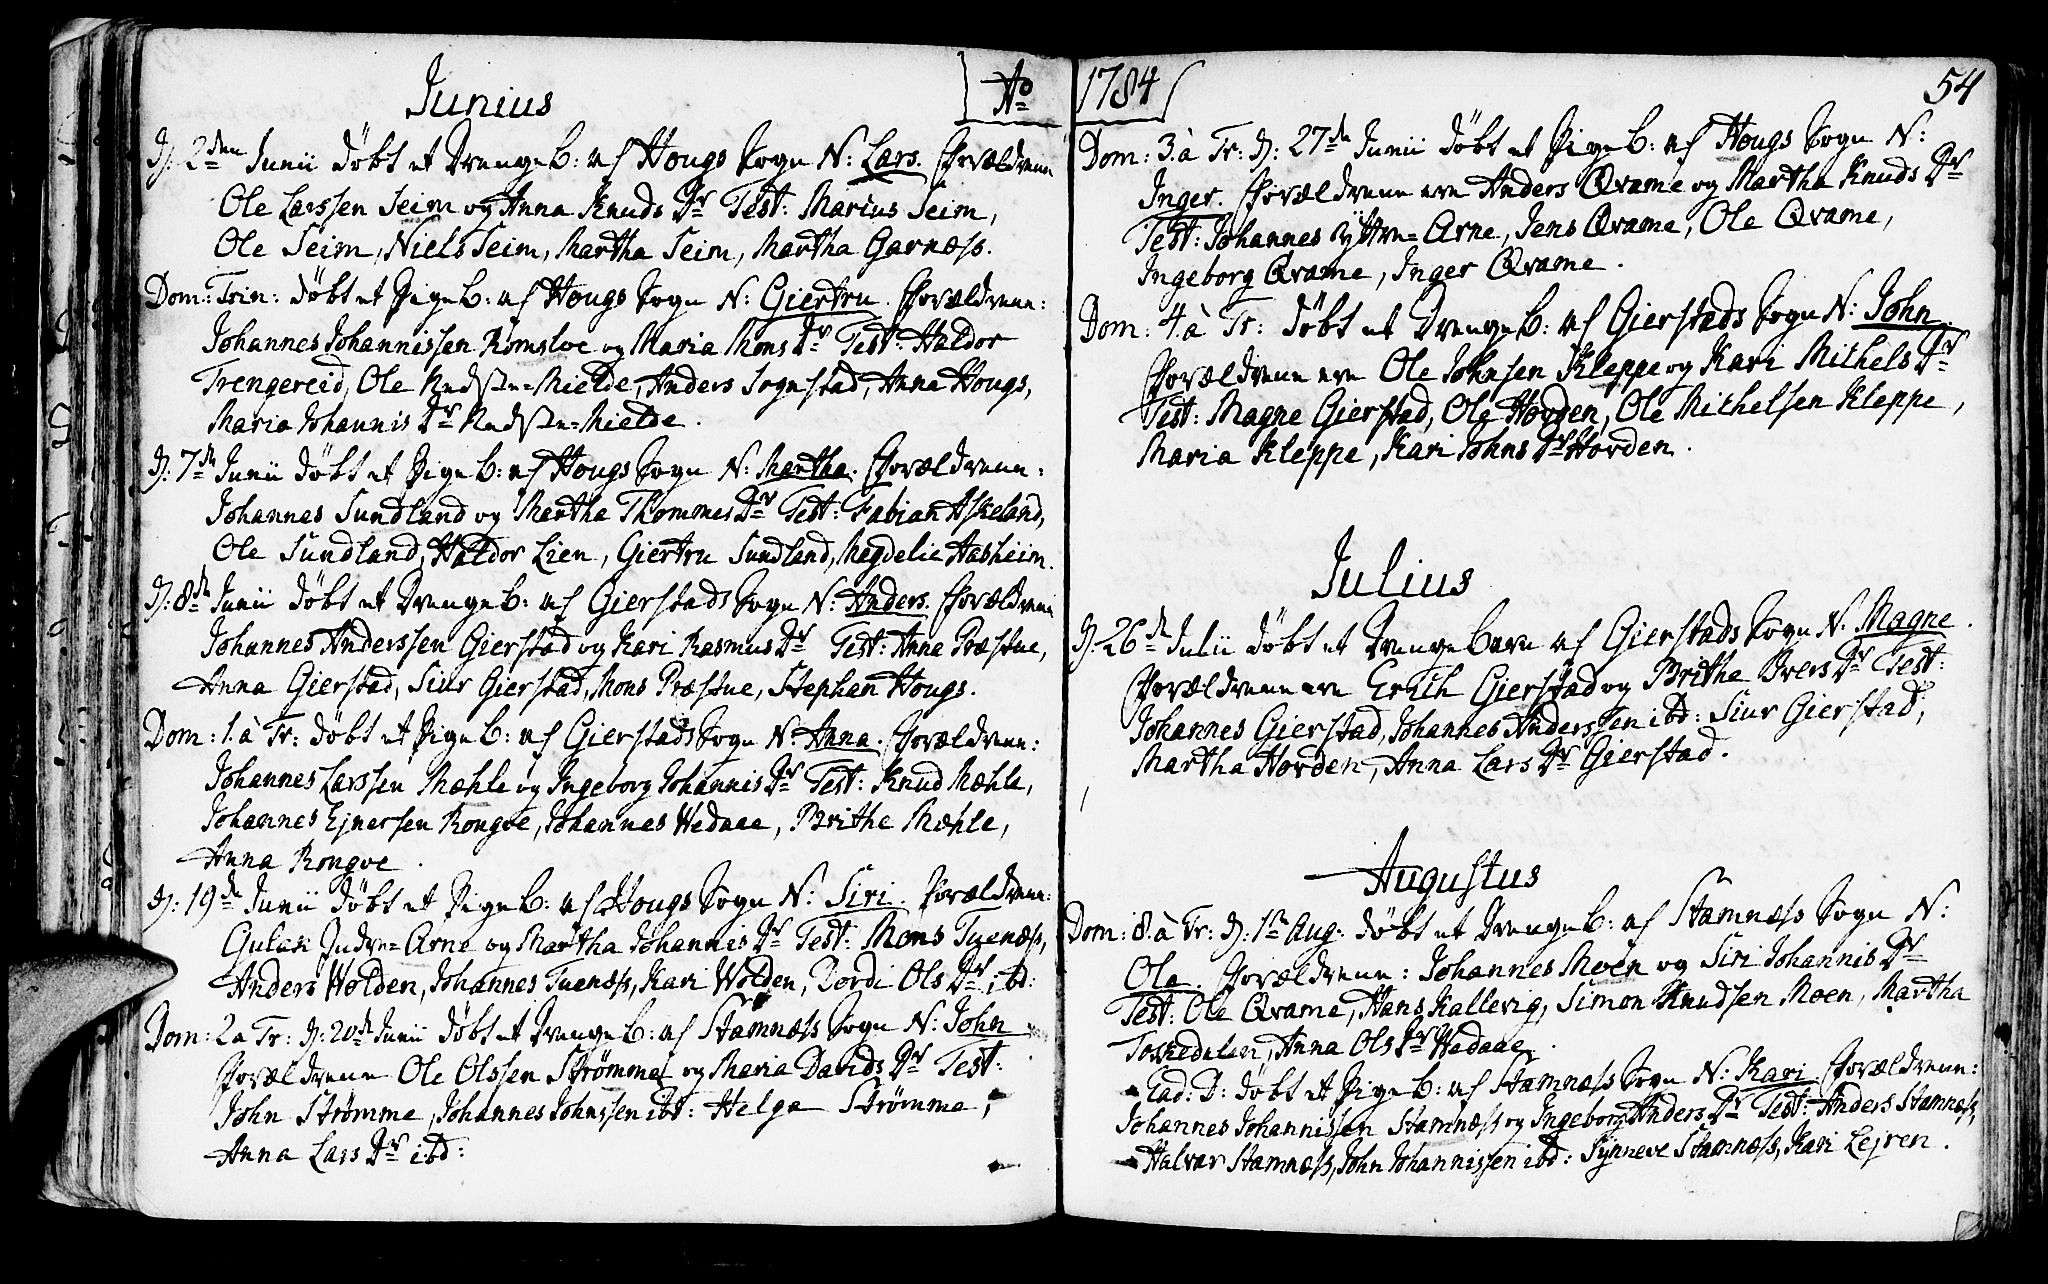 Junius
Ao
D: 2den Junii døbt et DrengeB: af Hougs Sogn N: Lars. Forældrene
Ole Larssen Seim og Anna Knuds Dr Test: Marius Seim,
Ole Seim, Niels Seim, Martha Seim, Martha Garnæss.
Dom: Trin: døbt et PigeB: af Hougs Sogn N: Giertru. Forældrene:
Johannes Johannissen Romsloe og Maria Mons Dr Test: Haldor
Trengereid, Ole Mielde, Anders Sognstad, Anna Hougs,
Maria Johannis Dr Mielde.
D: 7de Junii døbt et PigeB: af Hougs Sogn N: Martha. Forældrene:
Johannes Sundland og Martha Thommes Dr Test: Fabian Askeland,
Ole Sundland, Haldor Lien, Giertru Sundland, Magdelie Aasheim.
D: 8de Junii døbt et DrengeB: af Gierstads Sogn N: Anders. Forældrene
Johannes Anderssen Gierstad og Kari Rasmus Dr Test: Anna Præstue,
Anna Gierstad, Siur Gierstad, Mons Præstue, Stephan Hougs.
Dom: 1. à Tr: døbt et PigeB: af Gierstads Sogn N: Anna. Forældrene:
Johannes Larssen Mæhle og Ingeborg Johannis Dr Test: Knud Mæhle,
Johannes Ejnersen Rongve, Johannes Wedaae, Brithe Mæhle,
Anna Rongve.
D: 19de Junii døbt et PigeB: af Hougs Sogn N: Siri. Forældrene:
Gulak Indre=Arne og Martha Johannis Dr Test: Mons Tuenæss,
Anders Wolden, Johannes Tuenæss, Kari Wolden, Bordi Ols Dr ibd:
Dom: 2 a Tr: D: 20de Junii døbt et DrengeB: af Stamnæss Sogn N: John
Forældrene Ole Olssen Strømme og Maria Davids Dr Test:
John Strømme, Johannes Johnssen ibd: Helge Strømme,
Anna Lars Dr ibd:
1784
54
Dom: 3. à Tr: D: 27de Junii døbt et PigeB: af Hougs Sogn N:
Inger. Forældrene ere Anders Qvame og Martha Knuds Dr
Test: Johannes Yttre=Arne, Jens Qvame, Ole Qvame,
Ingeborg Qvame, Inger Qvame.
Dom: 4. à Tr: døbt et DrengeB: af Gierstads Sogn N: John.
Forældrene ere Ole Johnsen Kleppe og Kari Mithels Dr
Test: Magne Gierstad, Ole Horden, Ole Mithelsen Kleppe,
Maria Kleppe, Kari Johns Dr Horden.
Julius
D: 26de Julii døbt et Drengebarn af Gierstads Sogn N: Magne.
Forældrene ere Erich Gierstad og Brithe Ivers Dr Test:
Johannes Gierstad, Johannes Anderssen ibd: Siur Gierstad,
Martha Horden, Anna Lars Dr Gierstad.
Augustus
Dom: 8. à Tr: D: 1ste Aug: døbt et DrengeB: af Stamnæss Sogn N:
Ole. Forældrene: Johannes Moen og Siri Johannis Dr
Test: Ole Qvame, Hans Kallevig, Simon Knudsen Moen, Martha
Toskedalen, Anna Ols Dr Wedaae.
Ead: D: døbt et PigeB: af Stamnæss Sogn N: Kari. Forældrene:
Johannes Johannissen Stamnæss og Ingeborg Anders Dr Test: Anders Stamnæss,
Halvar Stamnæss, John Johannissen ibd: Synneve Stamnæss, Kari Lejren.